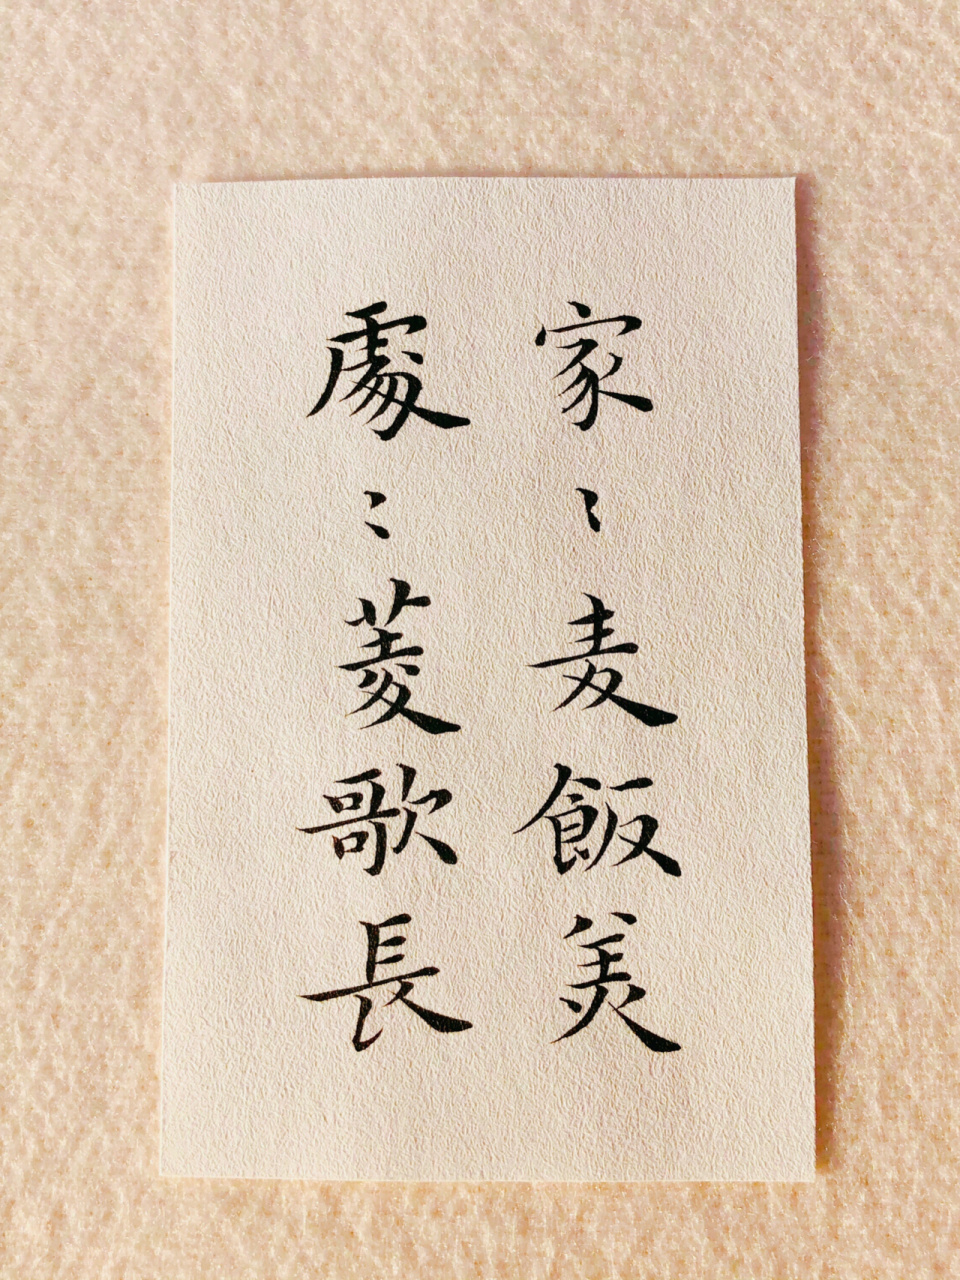 家〻麦飯美
處〻菱歌長